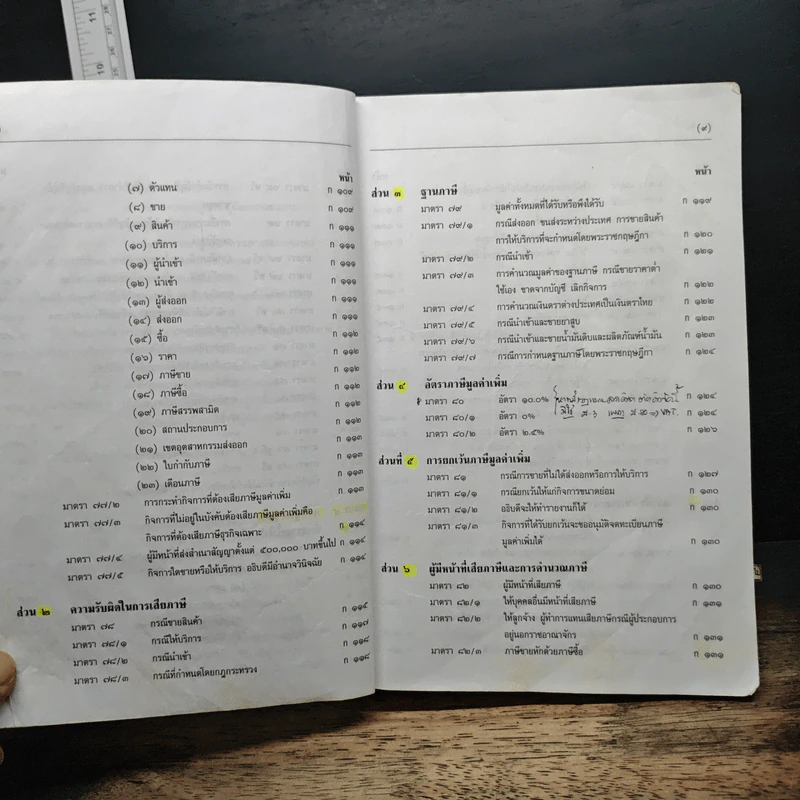 หน้า
(๗) ตัวแทน ก ๑๐๙
(๘) ขาย ก ๑๐๙
(๙) สินค้า ก ๑๑๑
(๑๐) บริการ ก ๑๑๑
(๑๑) ผู้นำเข้า ก ๑๑๑
(๑๒) นำเข้า ก ๑๑๑
(๑๓) ผู้ส่งออก ก ๑๑๑
(๑๔) ส่งออก ก ๑๑๑
(๑๕) ซื้อ ก ๑๑๒
(๑๖) ราคา ก ๑๑๒
(๑๗) ภาษีขาย ก ๑๑๒
(๑๘) ภาษีซื้อ ก ๑๑๒
(๑๙) ภาษีสรรพสามิต ก ๑๑๒
(๒๐) สถานประกอบการ ก ๑๑๒
(๒๑) เขตอุตสาหกรรมส่งออก ก ๑๑๓
(๒๒) ใบกำกับภาษี ก ๑๑๓
(๒๓) เดือนภาษี ก ๑๑๓
มาตรา ๗๗/๒ การกระทำกิจการที่ต้องเสียภาษีมูลค่าเพิ่ม ก ๑๑๓
มาตรา ๗๗/๓ กิจการที่ไม่อยู่ในบังคับต้องเสียภาษีมูลค่าเพิ่มคือ
กิจการที่ต้องเสียภาษีธุรกิจเฉพาะ ก ๑๑๔
มาตรา ๗๗/๔ ผู้มีหน้าที่ส่งสำเนาสัญญาตั้งแต่ ๕๐๐,๐๐๐ บาทขึ้นไป ก ๑๑๔
มาตรา ๗๗/๕ กิจการใดขายหรือให้บริการ อธิบดีมีอำนาจวินิจฉัย ก ๑๑๔
ส่วน ๒ ความรับผิดในการเสียภาษี
มาตรา ๗๘ กรณีขายสินค้า ก ๑๑๕
มาตรา ๗๘/๑ กรณีให้บริการ ก ๑๑๗
มาตรา ๗๘/๒ กรณีนำเข้า ก ๑๑๘
มาตรา ๗๘/๓ กรณีที่กำหนดโดยกฎกระทรวง ก ๑๑๘
(๙)
หน้า
ส่วน ๓ ฐานภาษี
มาตรา ๗๙ มูลค่าทั้งหมดที่ได้รับหรือพึงได้รับ ก ๑๑๙
มาตรา ๗๙/๑ กรณีส่งออก ขนส่งระหว่างประเทศ การขายสินค้า
การให้บริการที่จะกำหนดโดยพระราชกฤษฎีกา ก ๑๒๐
มาตรา ๗๙/๒ กรณีนำเข้า ก ๑๒๑
มาตรา ๗๙/๓ การคำนวณมูลค่าของฐานภาษี กรณีขายราคาต่ำ
ใช้เอง ขาดจากบัญชี เลิกกิจการ ก ๑๒๒
มาตรา ๗๙/๔ การคำนวณเงินตราต่างประเทศเป็นเงินตราไทย ก ๑๒๒
มาตรา ๗๙/๕ กรณีนำเข้าและขายยาสูบ ก ๑๒๓
มาตรา ๗๙/๖ กรณีนำเข้าและขายน้ำมันดิบและผลิตภัณฑ์น้ำมัน ก ๑๒๓
มาตรา ๗๙/๗ กรณีการกำหนดฐานภาษีโดยพระราชกฤษฎีกา ก ๑๒๔
ส่วน ๔ อัตราภาษีมูลค่าเพิ่ม
มาตรา ๘๐ อัตรา ๑๐.๐% ก ๑๒๔
มาตรา ๘๐/๑ อัตรา ๐% ก ๑๒๔
มาตรา ๘๐/๒ อัตรา ๒.๕% ก ๑๒๖
ส่วนที่ ๕ การยกเว้นภาษีมูลค่าเพิ่ม
มาตรา ๘๑ กรณีการขายที่ไม่ได้ส่งออกหรือการให้บริการ ก ๑๒๗
มาตรา ๘๑/๑ กรณียกเว้นให้แก่กิจการขนาดย่อม ก ๑๓๐
มาตรา ๘๑/๒ อธิบดีจะให้ทำรายงานก็ได้ ก ๑๓๐
มาตรา ๘๑/๓ กิจการที่ได้รับยกเว้นจะขออนุมัติจดทะเบียนภาษี
มูลค่าเพิ่มได้ ก ๑๓๐
ส่วน ๖ ผู้มีหน้าที่เสียภาษีและการคำนวณภาษี
มาตรา ๘๒ ผู้มีหน้าที่เสียภาษี ก ๑๓๐
มาตรา ๘๒/๑ ให้บุคคลอื่นมีหน้าที่เสียภาษี ก ๑๓๑
มาตรา ๘๒/๒ ให้ลูกจ้าง ผู้ทำการแทนเสียภาษีกรณีผู้ประกอบการ
อยู่นอกราชอาณาจักร ก ๑๓๑
มาตรา ๘๒/๓ ภาษีขายหักด้วยภาษีซื้อ ก ๑๓๑